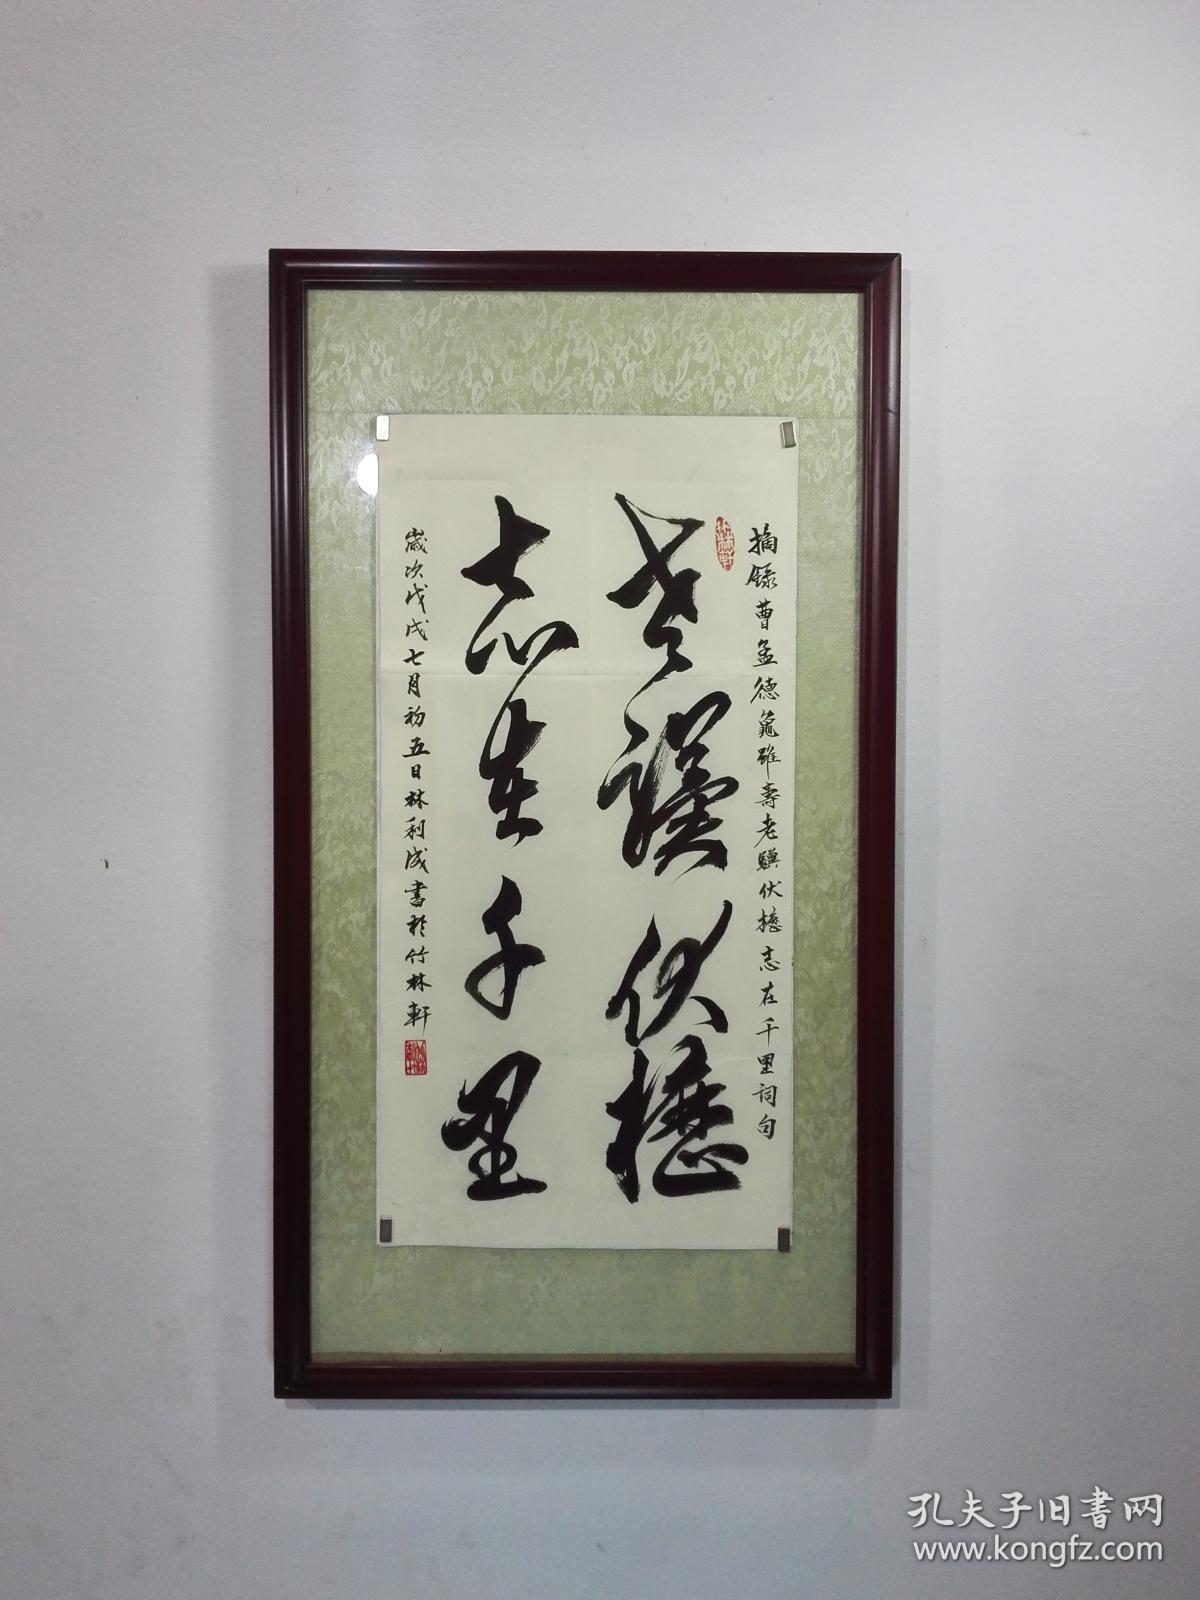 摘錄曹孟德龜雖壽老驥伏櫪志在千里詞句
竹林軒
老驥伏櫪
志在千里
歲次戊戌七月初五日林利成書於竹林軒
孔夫子旧书网
www.kongfz.com